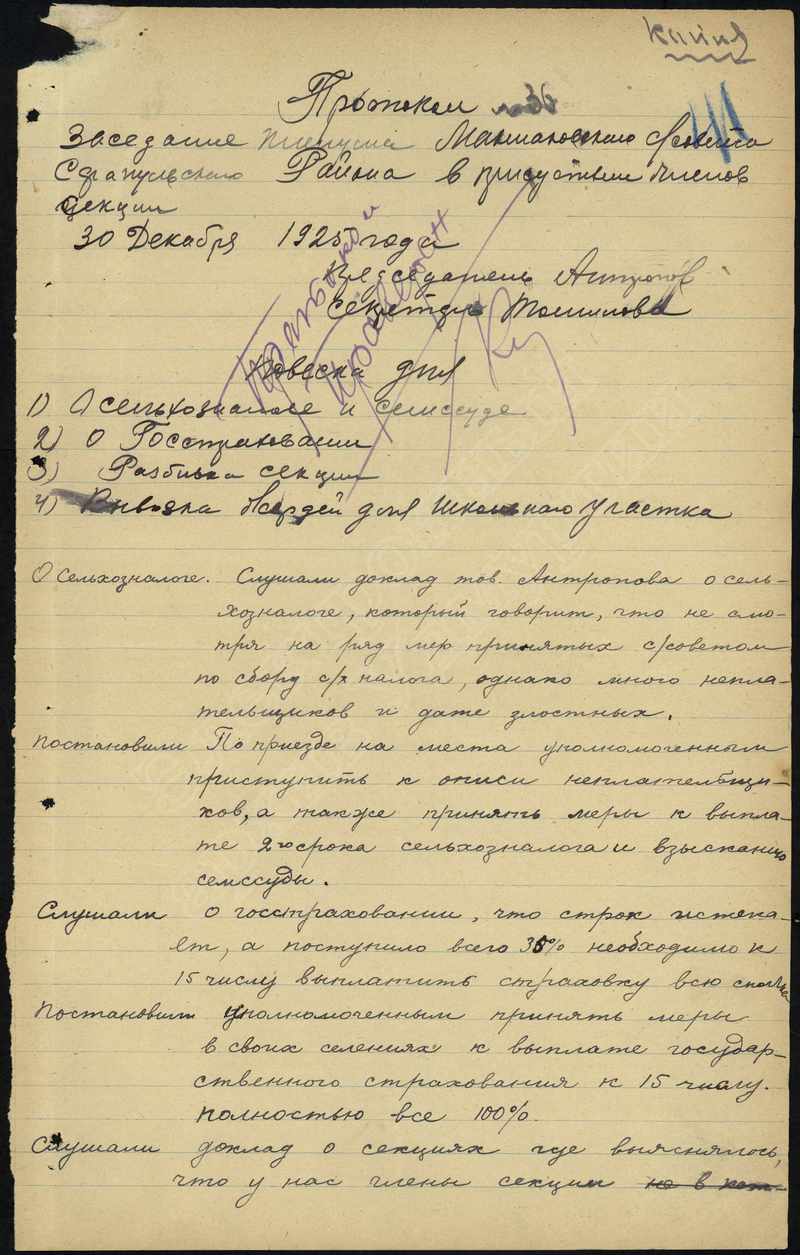 Копия
Протокол №36
Заседание пленума Макшаковского с/совета
Сарапульского Района в присутствии членов
секции
30 Декабря 1925 года
Председатель Антропов
секретарь Тошилова
Повеска дня
1) О сельхозналоге и семссуде
2) О Госстраховании
3) Разбивка секции
4) Вывозка жердей для школьного участка
О сельхозналоге. Слушали доклад тов. Антропова о сель-
хозналоге, который говорит, что не смо-
тря на ряд мер принятых с/советом
по сбору с/х налога, однако много непла-
тельщиков и даже злостных.
постановили По приезде на места уполномоченным
приступить к описи неплательщи-
ков, а также принять меры к выпла-
те 2го срока сельхозналога и взысканию
семссуды.
Слушали о госстраховании, что строк истека-
ет, а поступило всего 35% необходимо к
15 числу выплатить страховку всю
Постановили уполномоченным принять меры
в своих селениях к выплате государ-
ственного страхования к 15 числу.
полностью все 100%.
Слушали доклад о секциях где выяснялось,
что у нас члены секции не в